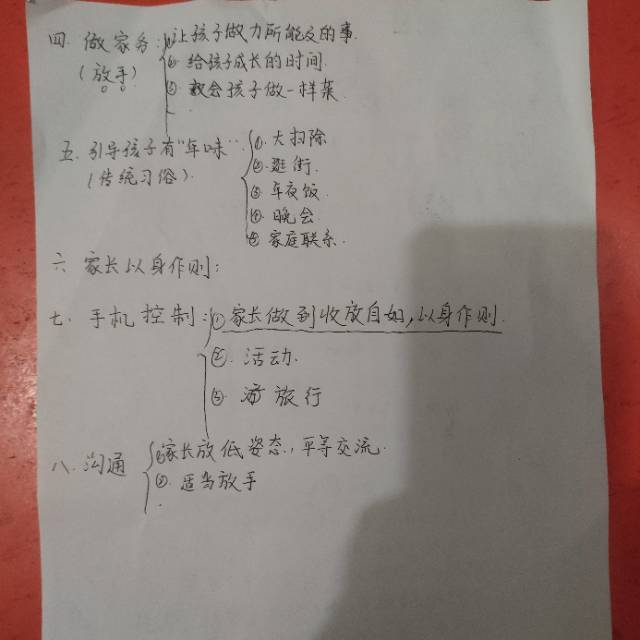 四. 做家务: ① 让孩子做力所能及的事.
(放手) ② 给孩子成长的时间.
③ 教会孩子做一样菜.
五. 引导孩子有"年味" ①. 大扫除
(传统习俗) ②. 逛街.
③. 年夜饭.
④. 晚会
⑤ 家庭联系.
六. 家长以身作则:
七. 手机控制: ① 家长做到收放自如, 以身作则.
②. 活动.
③ 旅行
八. 沟通 ① 家长放低姿态, 平等交流.
②. 适当放手